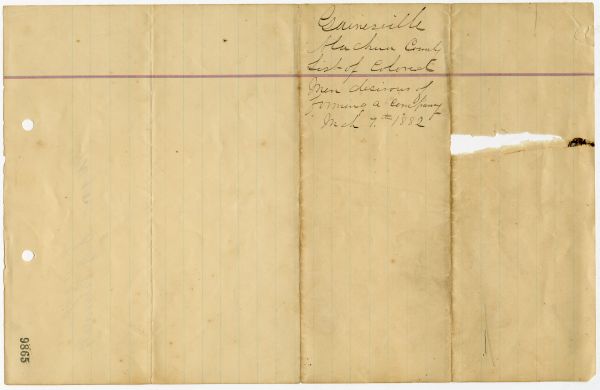 Gainesville
Alachua County
List of Colored
Men desirous of
forming a Company
Mch 7.th 1882
9865